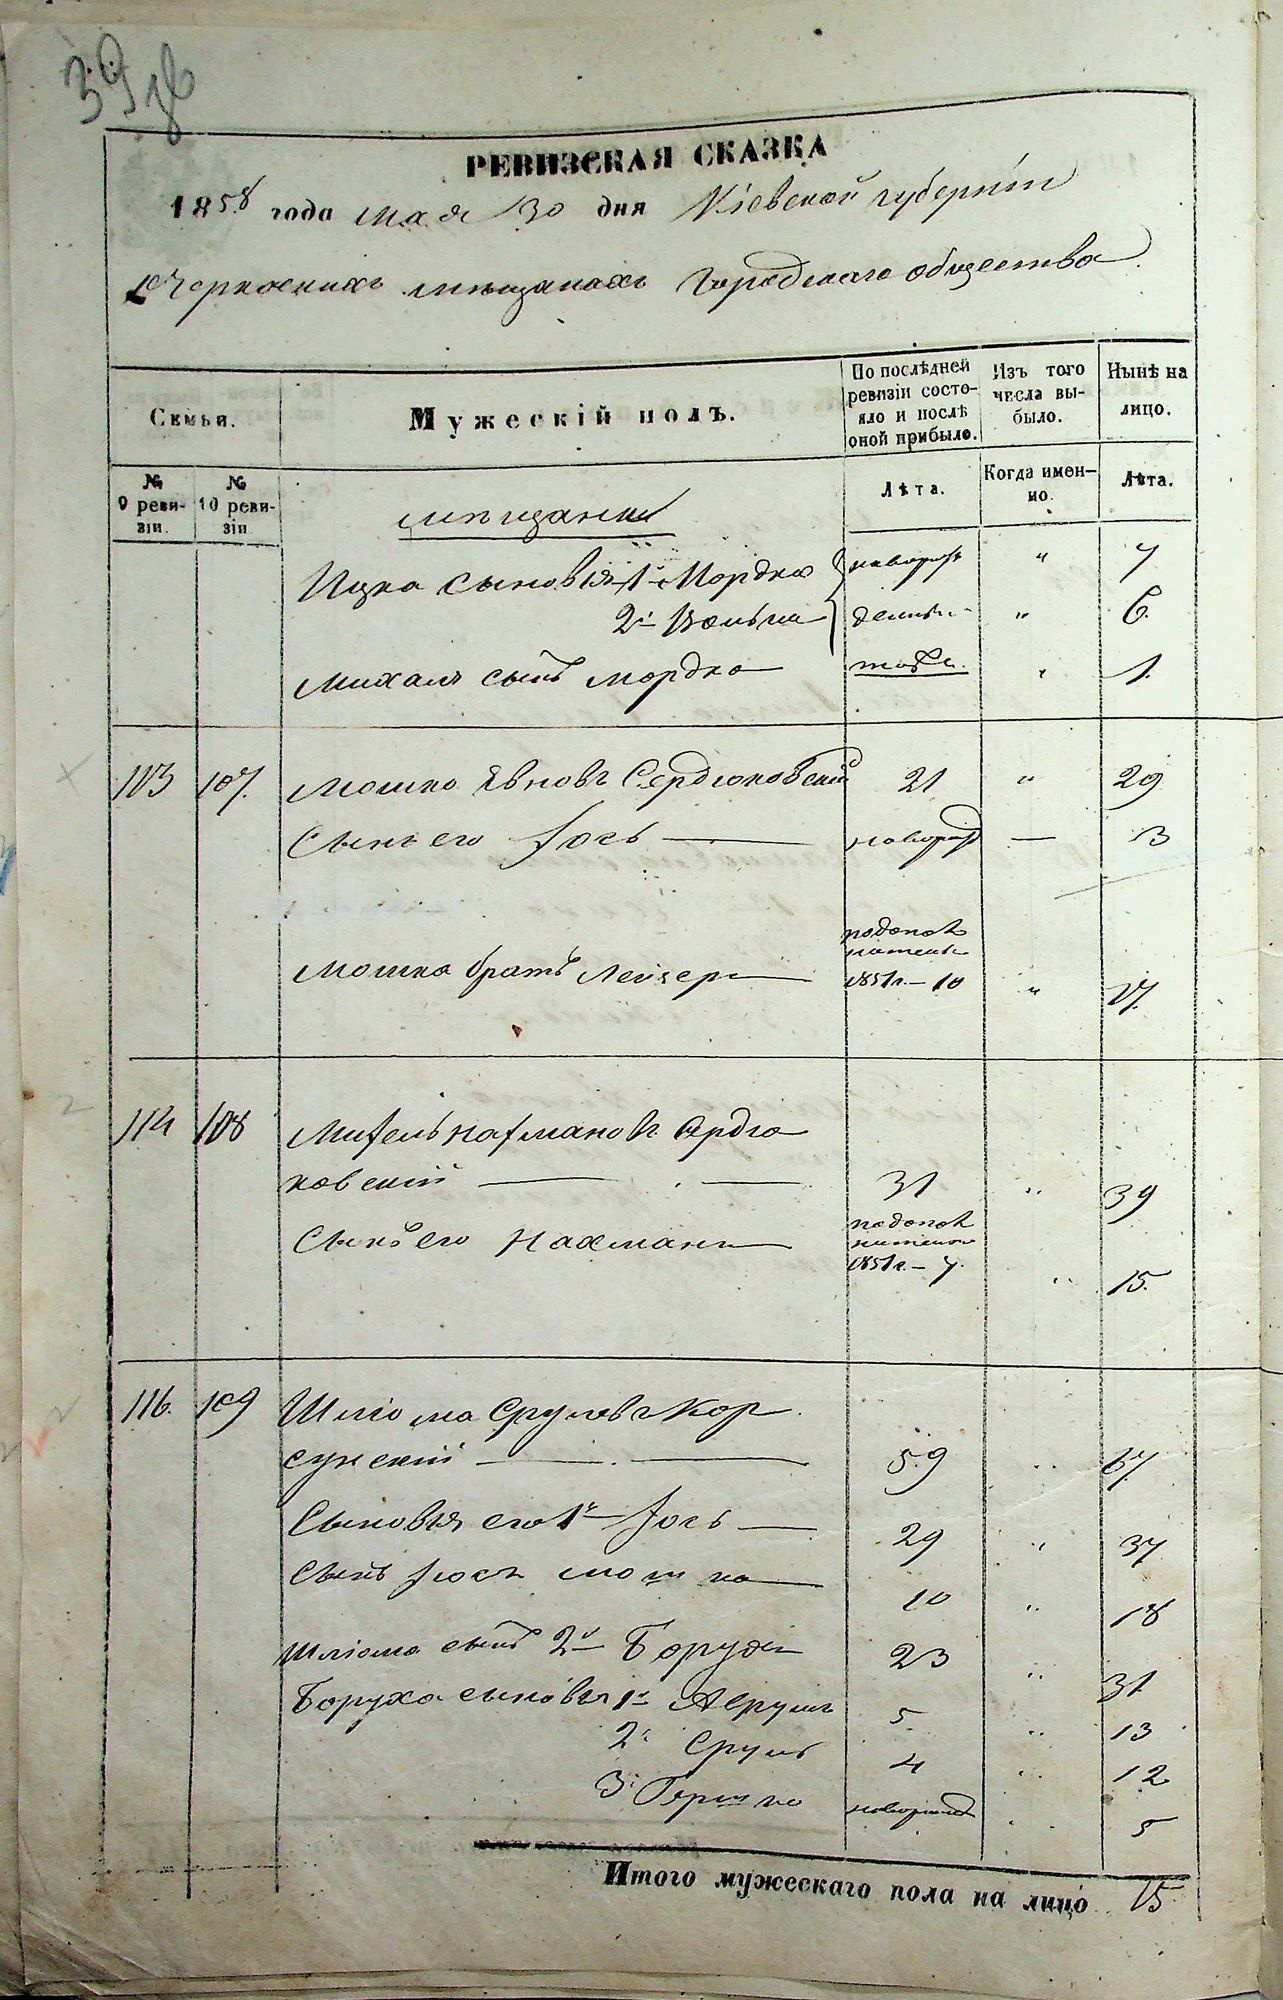 РЕВИЗСКАЯ СКАЗКА
1858 года мая 30 дня Кіевской губерніи
Черкаскихъ мѣщанахъ Городскаго общества
Семьи.
Мужескій полъ.
По послѣдней ревизіи состояло и послѣ оной прибыло.
Изъ того числа выбыло.
Нынѣ на лицо.
№ 9 ревизіи.
№ 10 ревизіи
Лѣта.
Когда именно.
Лѣта.
мѣщане
Ицка сыновья 1й Мордко новорож " 7
2й Волько " 6
Михаля сынъ Мордко тоже " 1
113 107. Мошко Явновъ Сердюковскій 21 " 29
Сынъ его Іось новорож — 3
Мошка братъ Лейзеръ 1851 г. — 10 " 17.
114 108 Михель Нахмановъ Сердю
ковскій 31 " 39
Сынъ его Нахманъ 1851 г. — 7. " 15.
116. 109 Шліома Срулевъ Кор
сунскій 59 " 67.
Сыновья его 1й Іось 29 " 37
Сынъ Іося Мошко 10 " 18
Шліома сынъ 2й Борухъ 23 " 31
Боруха сыновья 1й Аврумъ 5 " 13
2й Сруль 4 " 12
3й Гершко новорожд 5
Итого мужескаго пола на лицо 15